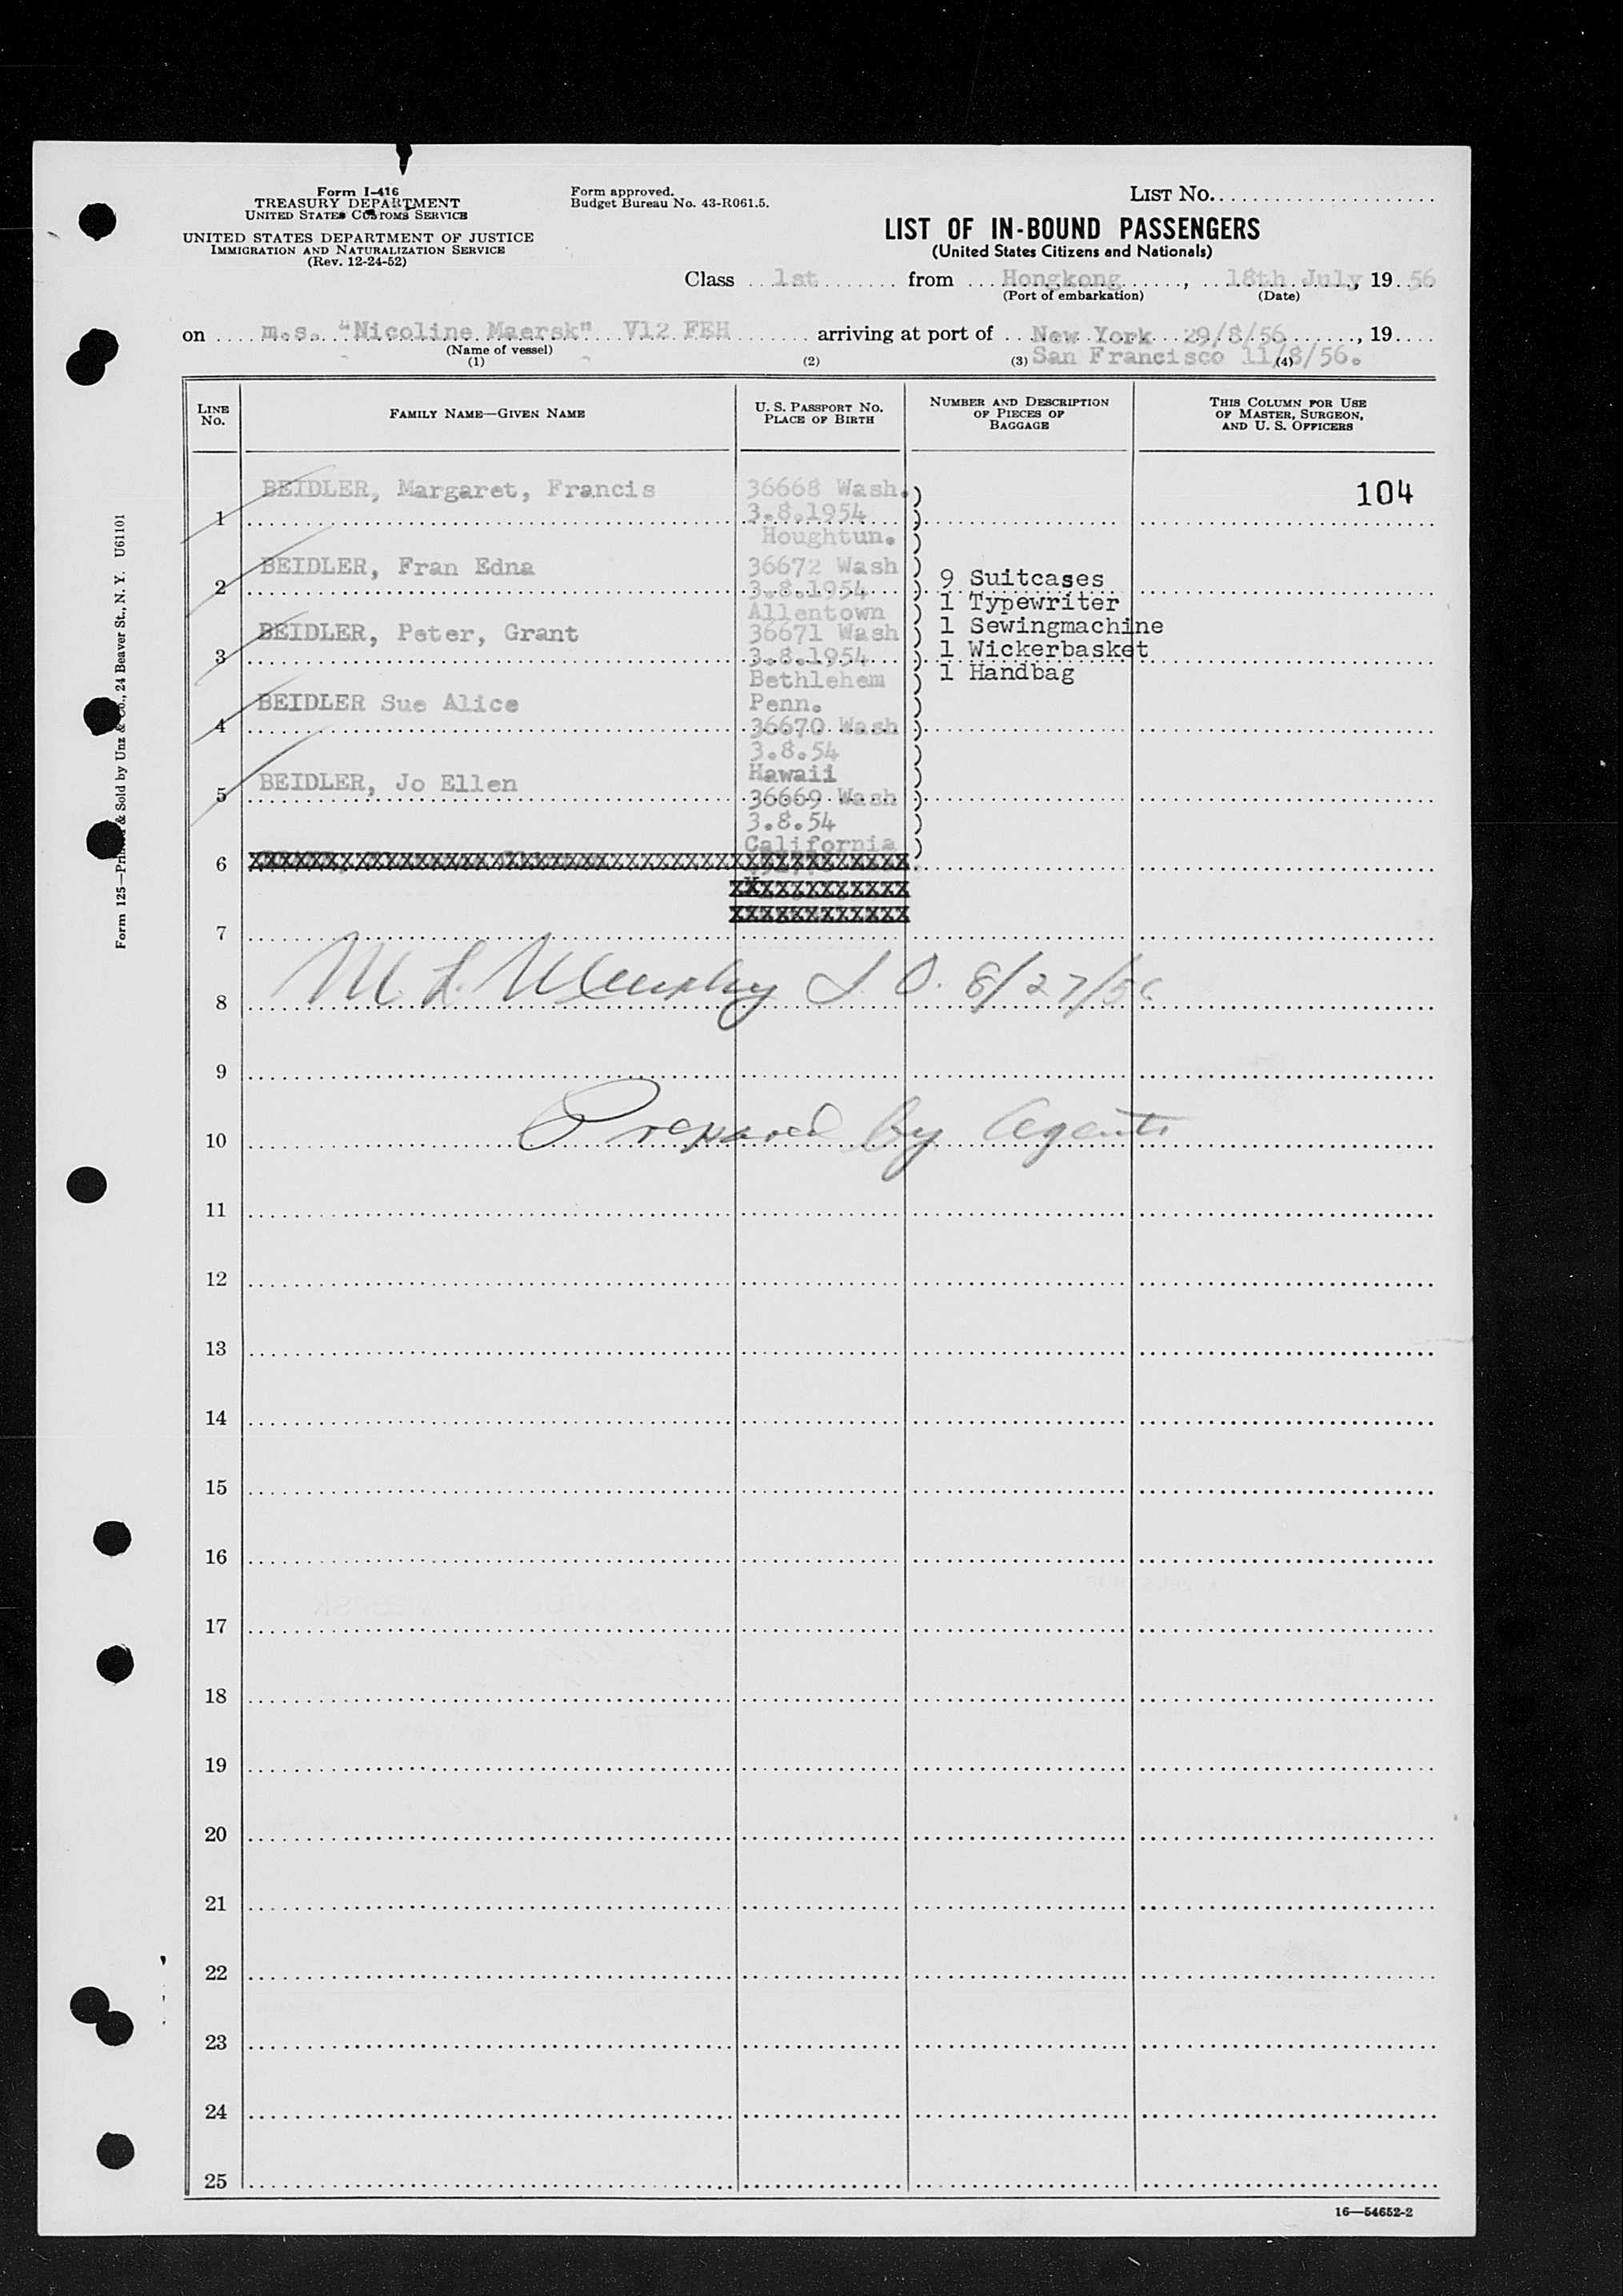 Form I-416
TREASURY DEPARTMENT
UNITED STATES CUSTOMS SERVICE
UNITED STATES DEPARTMENT OF JUSTICE
IMMIGRATION AND NATURALIZATION SERVICE
(Rev. 12-24-52)
Form approved.
Budget Bureau No. 43-R061.5.
LIST NO.
LIST OF IN-BOUND PASSENGERS
(United States Citizens and Nationals)
Class 1st from Hongkong, 18th July, 19 56
(Port of embarkation) (Date)
on m.s. "Nicoline Maersk" V12 FEH arriving at port of New York 29/8/56, 19
(Name of vessel) San Francisco 11/8/56.
(1) (2) (3) (4)
LINE No.
FAMILY NAME—GIVEN NAME
U. S. PASSPORT NO.
PLACE OF BIRTH
NUMBER AND DESCRIPTION
OF PIECES OF
BAGGAGE
THIS COLUMN FOR USE
OF MASTER, SURGEON,
AND U. S. OFFICERS
104
1 BEIDLER, Margaret, Francis 36668 Wash.)
3.8.1954 )
Houghtun. )
2 BEIDLER, Fran Edna 36672 Wash )
3.8.1954 )
Allentown )
3 BEIDLER, Peter, Grant 36671 Wash )
3.8.1954 )
Bethlehem )
Penn.
9 Suitcases
1 Typewriter
1 Sewingmachine
1 Wickerbasket
1 Handbag
4 BEIDLER Sue Alice
36670 Wash )
3.8.54 )
Hawaii )
5 BEIDLER, Jo Ellen
36669 Wash )
3.8.54 )
California )
6
7
8 M. L. Murphy I. O. 8/27/56
9
10 Prepared by Agents
11
12
13
14
15
16
17
18
19
20
21
22
23
24
25
16—54652-2
Form 125—Printed & Sold by Unz & Co., 24 Beaver St., N. Y. U61101